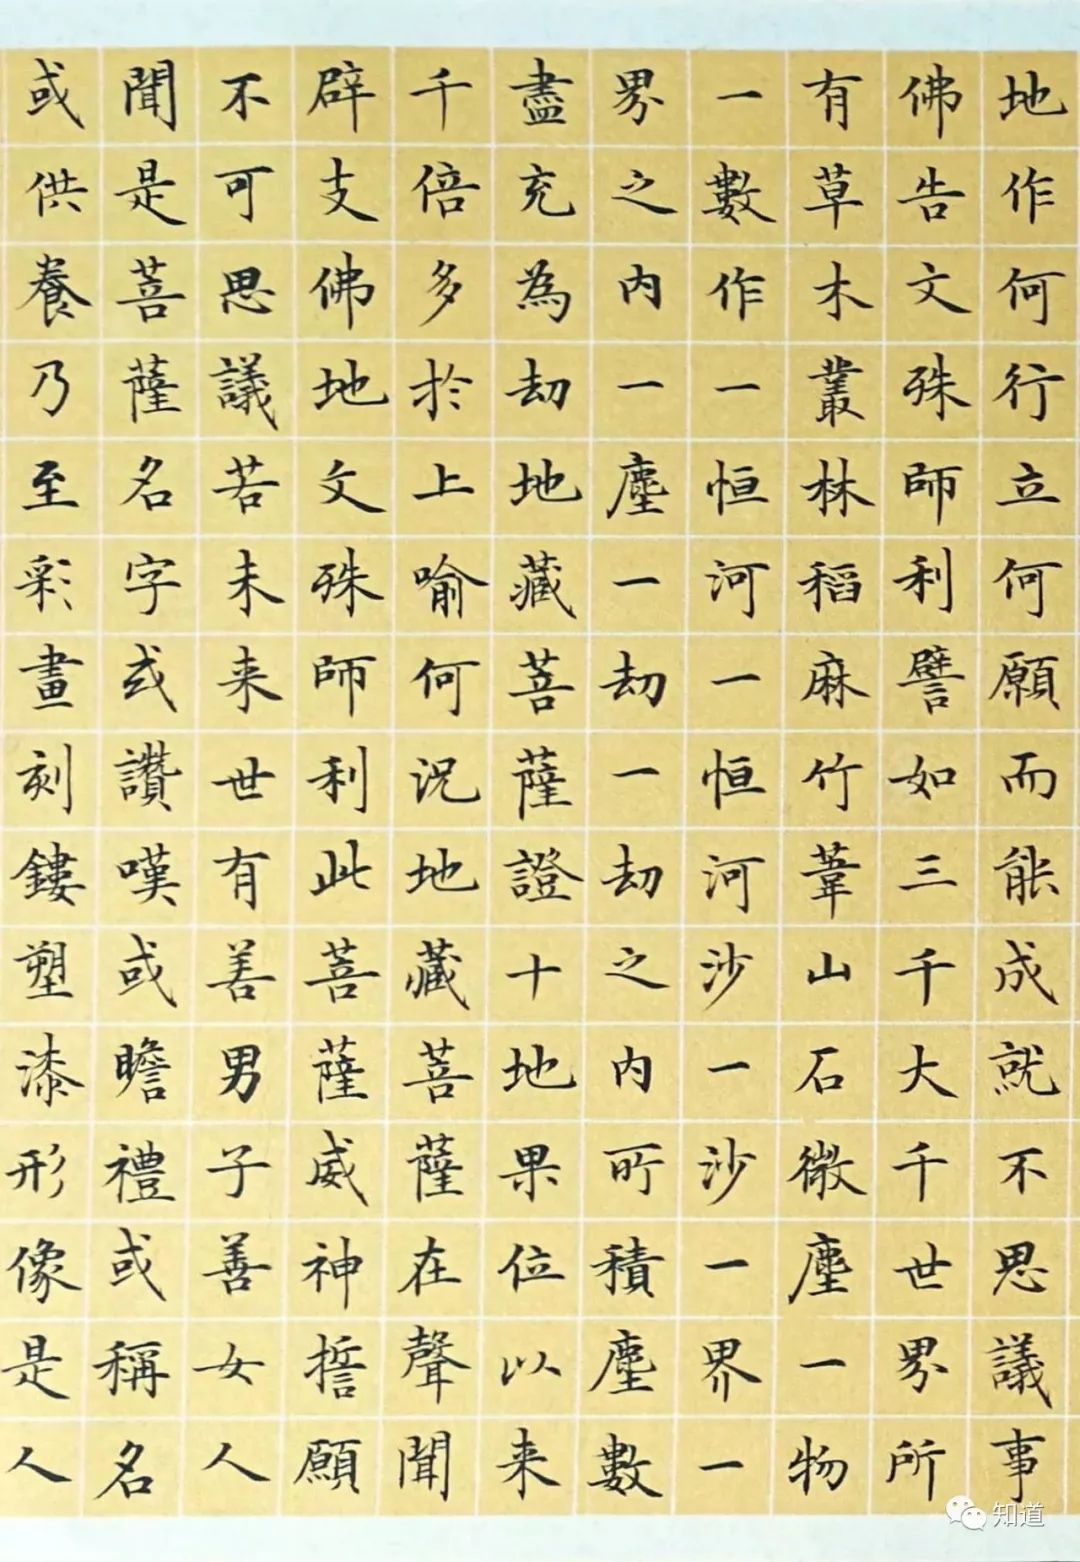 地作何行立何願而能成就不思議事
佛告文殊師利譬如三千大千世界所
有草木叢林稻麻竹葦山石微塵一物
一數作一恒河一恒河沙一沙一界一
界之內一塵一劫一劫之內所積塵數
盡充為劫地藏菩薩證十地果位以来
千倍多於上喻何況地藏菩薩在聲聞
辟支佛地文殊師利此菩薩威神誓願
不可思議若未来世有善男子善女人
聞是菩薩名字或讚嘆或瞻禮或稱名
或供養乃至彩畫刻鏤塑漆形像是人
知道